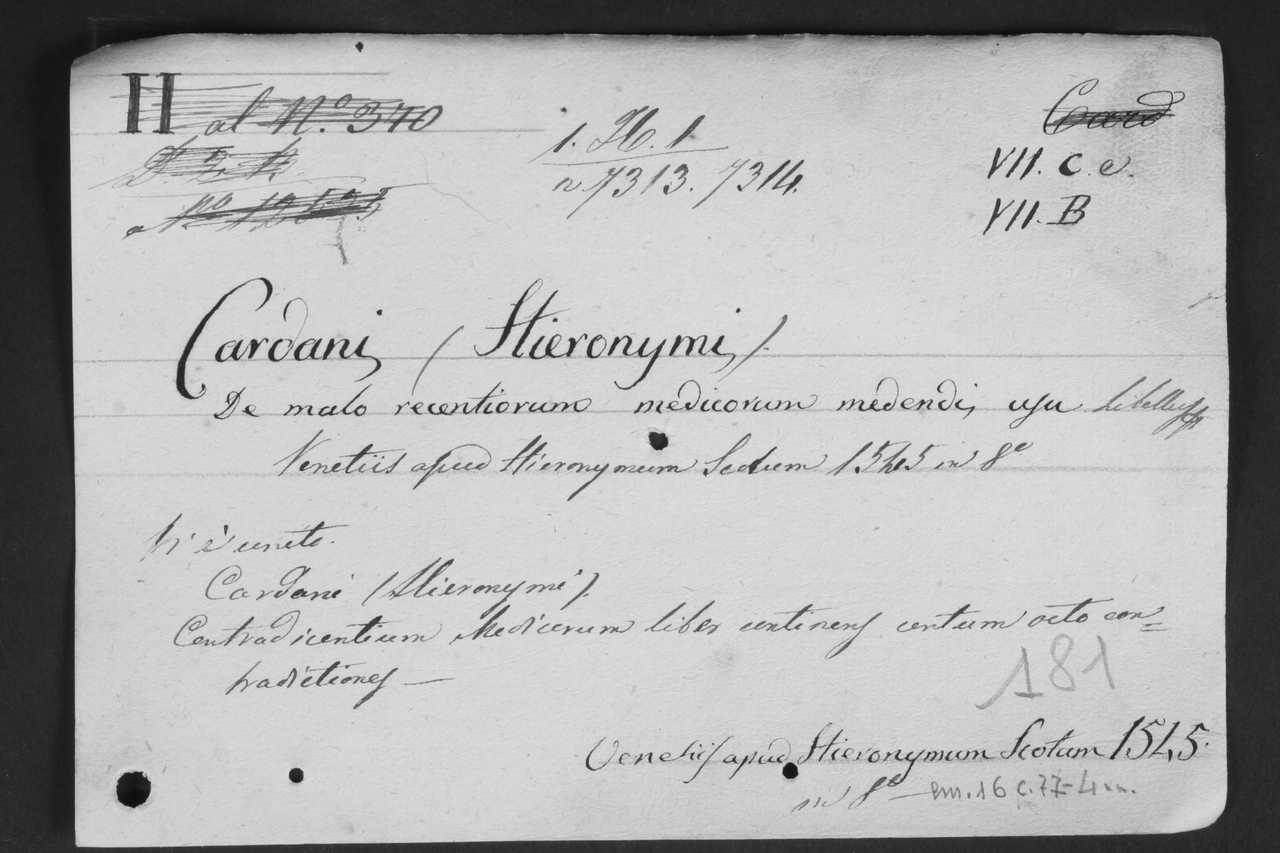 H al N.° 340
1. H. 1
n. 7313. 7314.
Card
VII. C. e.
VII. B
Cardani (Hieronymi).
De malo recentiorum medicorum medendi usu libellus
Venetiis apud Hieronymum Scotum 1545 in 8°
Vi è unito.
Cardani (Hieronymi).
Contradicentium Medicorum liber continens centum octo con=
tradictiones —
181
Venetiis apud Hieronymum Scotum 1545.
in 8° — em. 16 c. 77-4